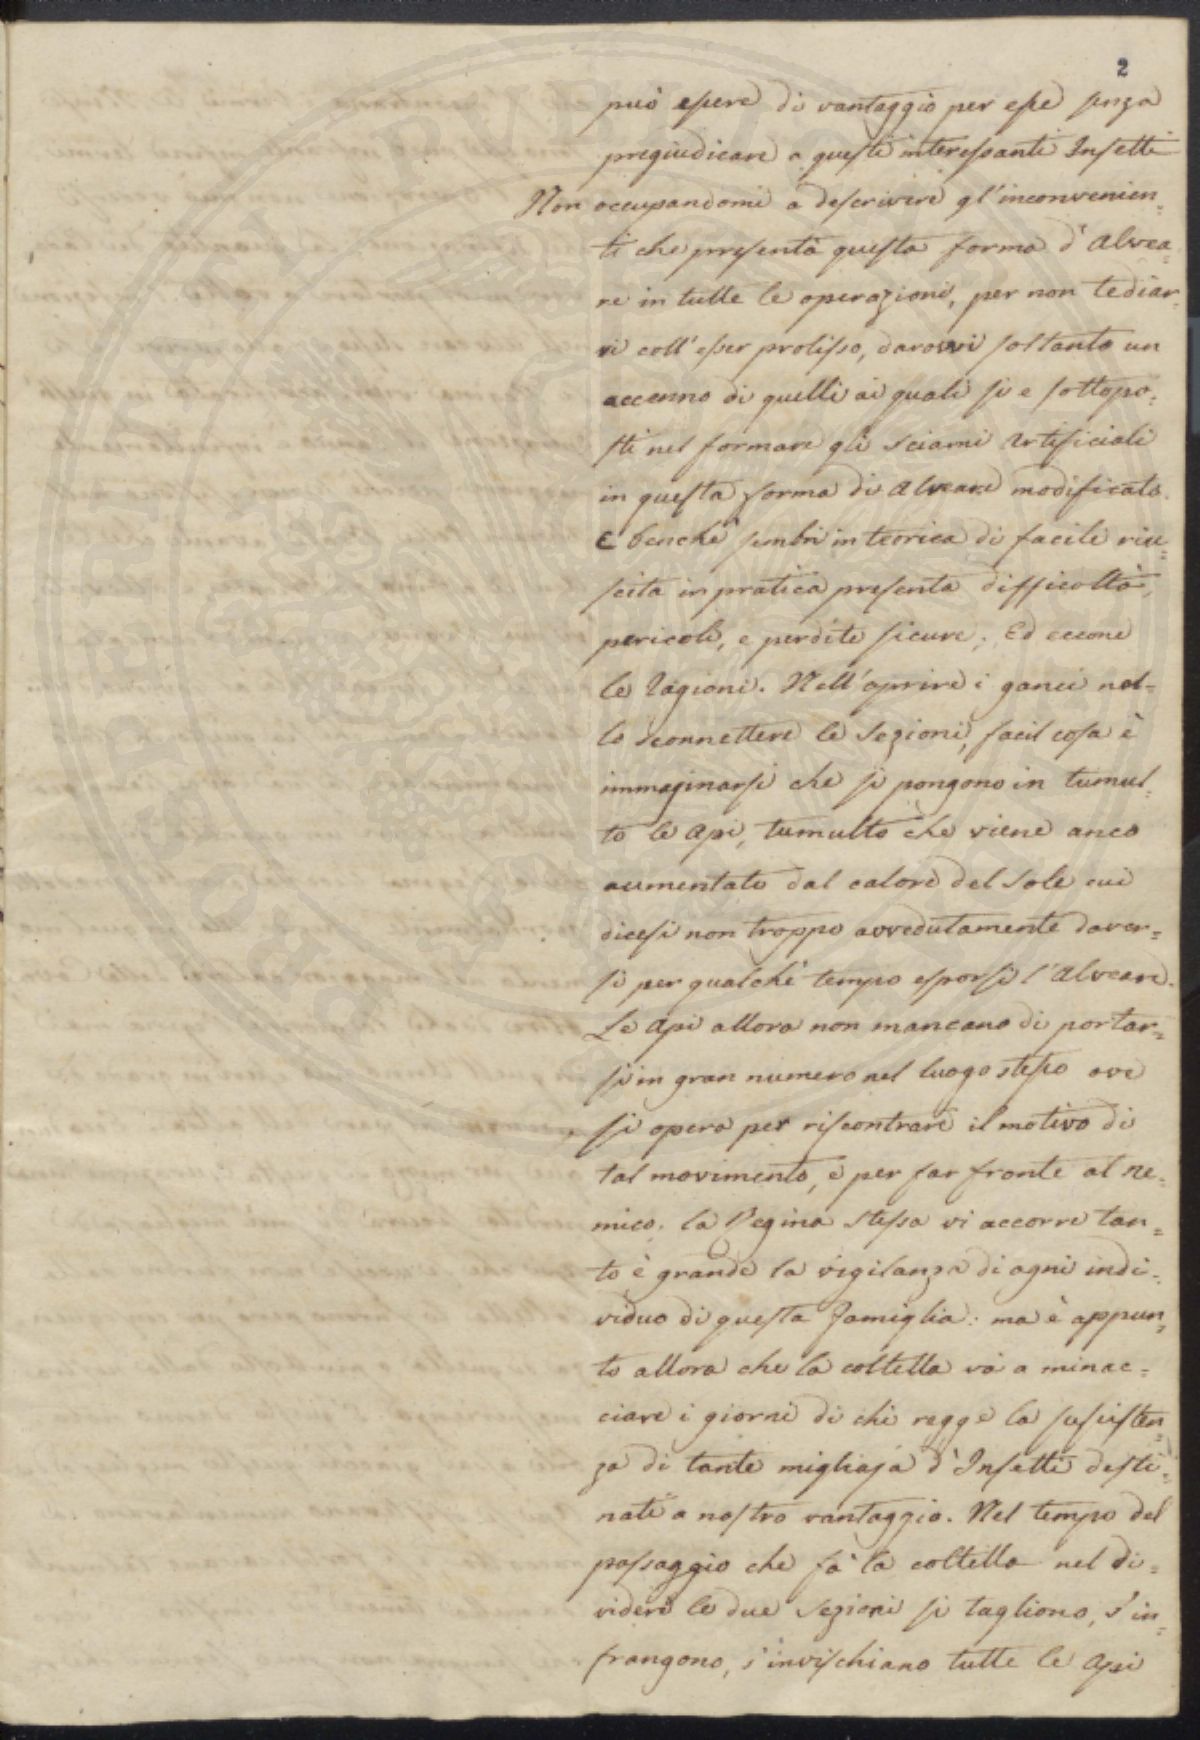 2
può essere di vantaggio per esse senza
pregiudicare a questi interessanti Insetti
Non occupandomi a descrivere gl'inconvenien=
ti che presenta questa forma d'Alvea=
re in tutte le operazioni, per non tediar=
vi coll'esser prolisso, darovvi soltanto un
accenno di quelli ai quali si e sottopo=
sti nel formare gli sciami Artificiali
in questa forma di Alveare modificato.
E benchè sembri in teorica di facile riu=
scita in pratica presenta difficoltà,
pericoli, e perdite sicure. Ed eccone
le Ragioni. Nell'aprire i ganci nel=
lo sconnettere le sezioni, facil cosa è
immaginarsi che si pongono in tumul=
to le Api, tumulto che viene anco
aumentato dal calore del Sole cui
dicesi non troppo avvedutamente dover=
si per qualche tempo esporsi l'Alveare.
Le Api allora non mancano di portar=
si in gran numero nel luogo stesso ove
si opera per riscontrare il motivo di
tal movimento, e per far fronte al ne=
mico. la Regina stessa vi accorre tan=
to è grande la vigilanza di ogni indi=
viduo di questa famiglia: ma è appun=
to allora che la coltella và a minac=
ciare i giorni di chi regge la susisten=
za di tante migliaja d'Insetti desti=
nati a nostro vantaggio. Nel tempo del
passaggio che fà la coltella nel di=
videre le due sezioni si tagliono, s'in=
frangono, s'invischiano tutte le Api